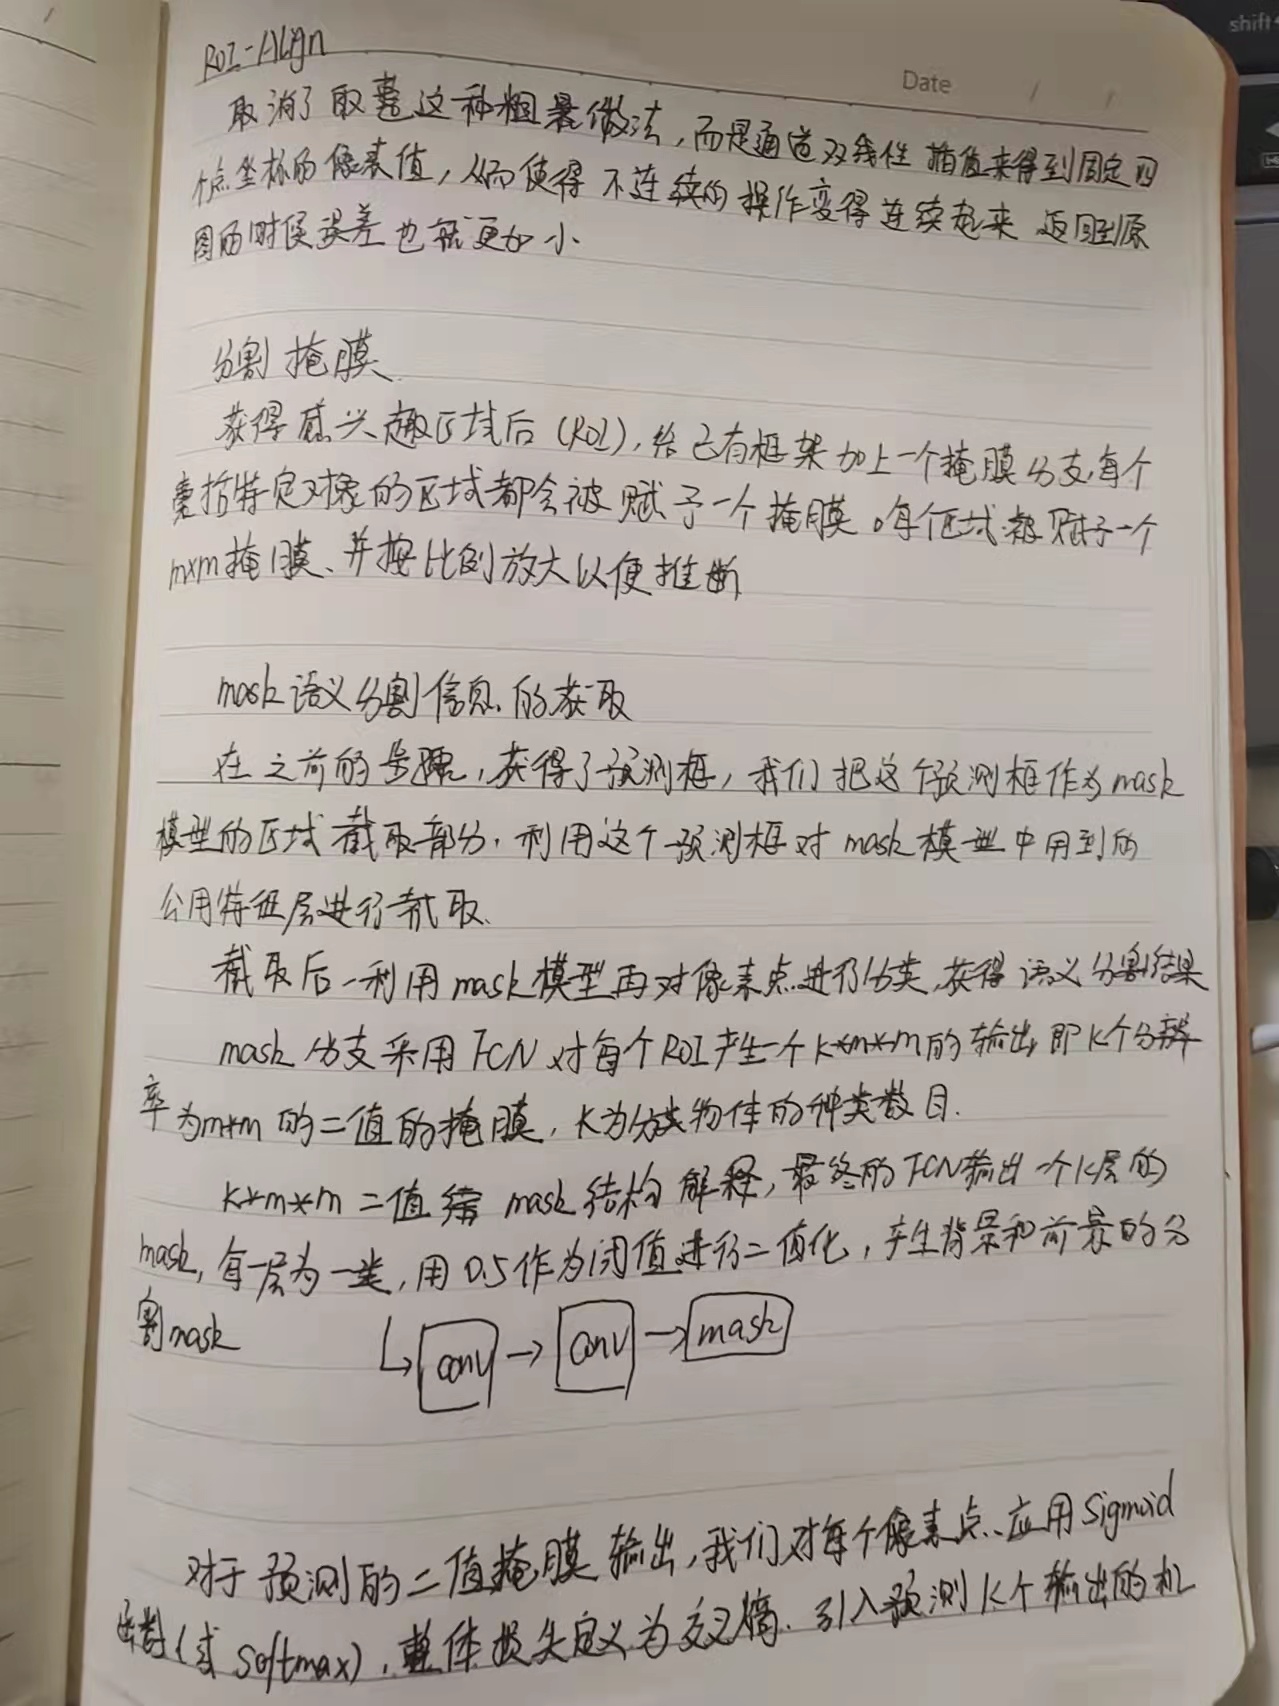 shift
Date / /
ROI-Align
取消了取整这种粗暴做法，而是通道双线性插值来得到固定四
个点坐标的像素值，从而使得不连续的操作变得连续起来，返回到原
图的时候误差也就更加小
分割掩膜
获得感兴趣区域后（ROI），给已有框架加上一个掩膜分支，每个
囊括特定对象的区域都会被赋予一个掩膜。每个区域都赋予一个
m×m掩膜、并按比例放大以便推断
mask语义分割信息的获取
在之前的步骤，获得了预测框，我们把这个预测框作为mask
模型的区域截取部分，利用这个预测框对mask模型中用到的
公用特征层进行截取.
截取后，利用mask模型再对像素点进行分类，获得语义分割结果
mask分支采用FCN对每个ROI产生一个K*m*m的输出，即K个分辨
率为m*m的二值的掩膜，K为分类物体的种类数目.
K*m*m二值 mask结构解释，最终的FCN输出一个K层的
mask，每一层为一类，用0.5作为阈值进行二值化，产生背景和前景的分
割mask
conv → conv → mask
对于预测的二值掩膜输出，我们对每个像素点应用Sigmoid
函数（或Softmax），整体损失定义为交叉熵.引入预测K个输出的机